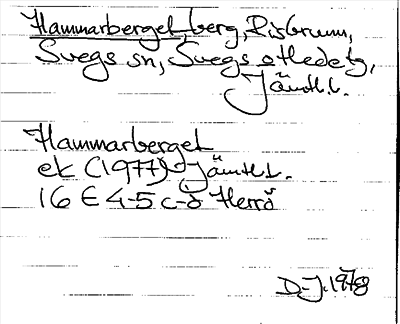 Hammarberget, berg, Risbrunn,
Svegs sn, Svegs othedetg,
Jämtl.l.
Hammarberget
ek (1977) Jämtl.l.
16 E 4-5 c-d Herrö
D-J. 1978